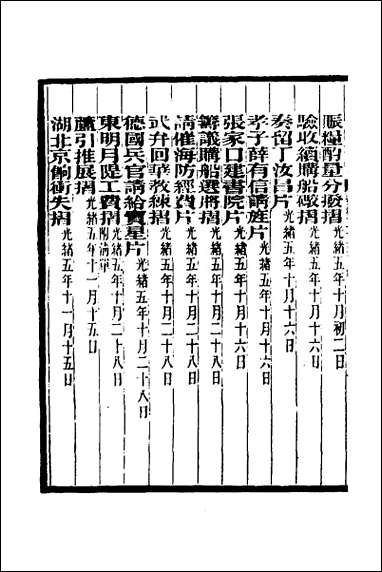 賑糧酌量分撥摺光緒五年十月初二日
驗收續購船礮摺光緒五年十月十六日
奏留丁汝昌片光緒五年十月十六日
孝子薛有信請旌片光緒五年十月十六日
張家口建書院片光緒五年十月十六日
籌議購船選將摺光緒五年十月二十八日
請催海防經費片光緒五年十月二十八日
武弁回華教練摺光緒五年十月二十八日
德國兵官請給寶星片光緒五年十月二十八日
東明月隄工費摺附清單光緒五年十月二十八日
蘆引推展摺光緒五年十一月十五日
湖北京餉衝失摺光緒五年十一月十五日